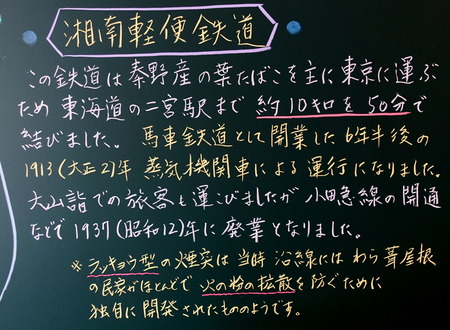 湘南軽便鉄道
この鉄道は秦野産の葉たばこを主に東京に運ぶ
ため東海道の二宮駅まで約10キロを50分で
結びました。馬車鉄道として開業した6年半後の
1913(大正2)年蒸気機関車による運行になりました。
大山詣での旅客も運こびましたが小田急線の開通
などで1937(昭和12)年に廃業となりました。
※ラッキョウ型の煙突は当時沿線にはわら葺屋根
の民家がほとんどで火の粉の拡散を防ぐために
独自に開発されたもののようです。